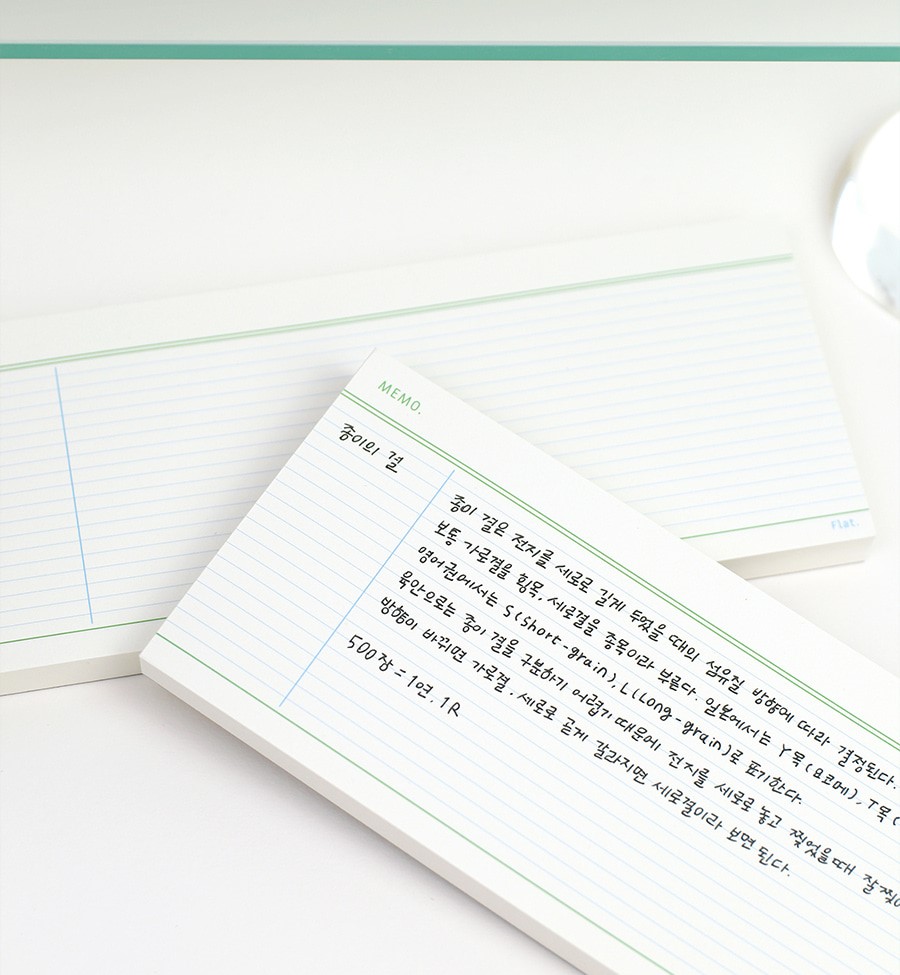 MEMO.
종이의 결
종이 결은 전지를 세로로 길게 두었을 때의 섬유질 방향에 따라 결정된다.
보통 가로결을 횡목, 세로결을 종목이라 부른다. 일본에서는 Y목(요코메), T목(
영어권에서는 S(short-grain), L(Long-grain)로 표기한다.
육안으로는 종이 결을 구분하기 어렵기 때문에 전지를 세로로 놓고 찢었을때 잘 찢
방향이 바뀌면 가로결, 세로로 곧게 갈라지면 세로결이라 보면 된다.
500장 = 1연, 1R
Flat.